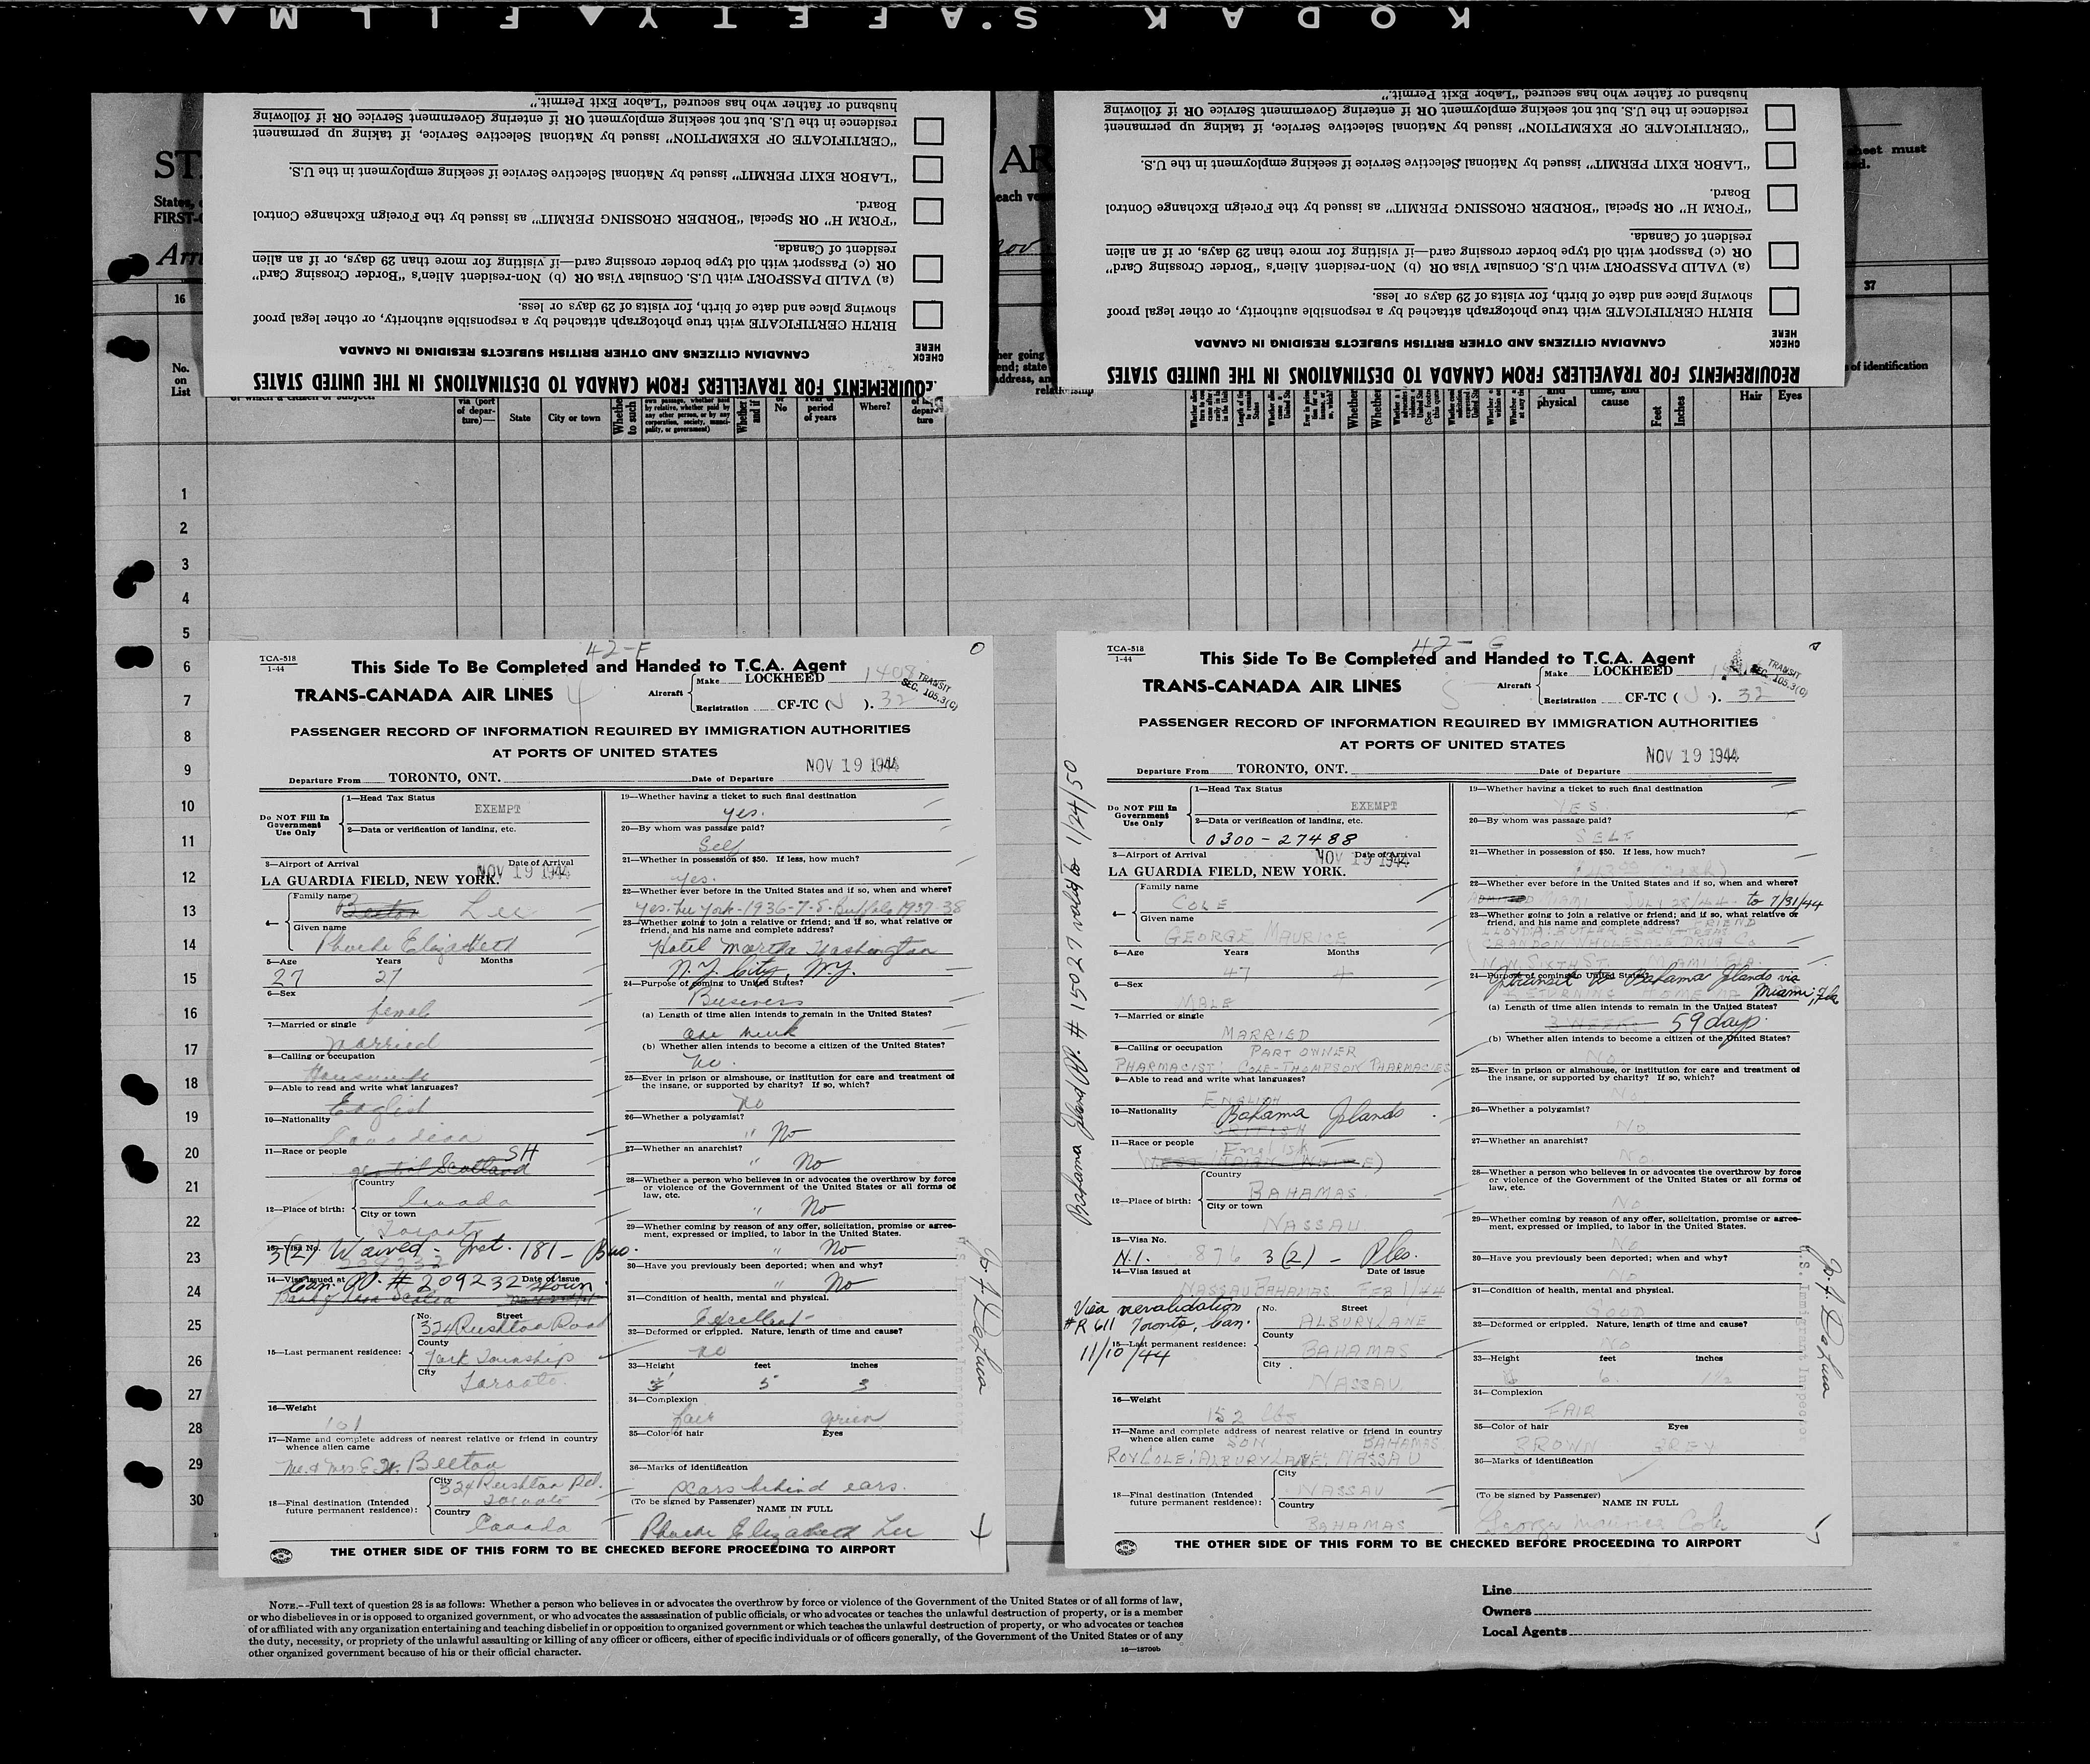 KODAK S'AFETY FILM
husband or father who has secured "Labor Exit Permit."
residence in the U.S. but not seeking employment OR if entering Government Service OR if following
"CERTIFICATE OF EXEMPTION" issued by National Selective Service, if taking up permanent
"LABOR EXIT PERMIT" issued by National Selective Service if seeking employment in the U.S.
Board.
"FORM H" OR Special "BORDER CROSSING PERMIT" as issued by the Foreign Exchange Control
resident of Canada.
OR (c) Passport with old type border crossing card—if visiting for more than 29 days, or if an alien
(a) VALID PASSPORT with U.S. Consular Visa OR (b) Non-resident Alien's "Border Crossing Card"
showing place and date of birth, for visits of 29 days or less.
BIRTH CERTIFICATE with true photograph attached by a responsible authority, or other legal proof
CHECK HERE
CANADIAN CITIZENS AND OTHER BRITISH SUBJECTS RESIDING IN CANADA
REQUIREMENTS FOR TRAVELLERS FROM CANADA TO DESTINATIONS IN THE UNITED STATES
husband or father who has secured "Labor Exit Permit."
residence in the U.S. but not seeking employment OR if entering Government Service OR if following
"CERTIFICATE OF EXEMPTION" issued by National Selective Service, if taking up permanent
"LABOR EXIT PERMIT" issued by National Selective Service if seeking employment in the U.S.
Board.
"FORM H" OR Special "BORDER CROSSING PERMIT" as issued by the Foreign Exchange Control
resident of Canada.
OR (c) Passport with old type border crossing card—if visiting for more than 29 days, or if an alien
(a) VALID PASSPORT with U.S. Consular Visa OR (b) Non-resident Alien's "Border Crossing Card"
showing place and date of birth, for visits of 29 days or less.
BIRTH CERTIFICATE with true photograph attached by a responsible authority, or other legal proof
CHECK HERE
CANADIAN CITIZENS AND OTHER BRITISH SUBJECTS RESIDING IN CANADA
REQUIREMENTS FOR TRAVELLERS FROM CANADA TO DESTINATIONS IN THE UNITED STATES
16
37
No. on List
via (port of depar-ture)—
State
City or town
No
period of years
Where?
physical
time, and cause
Feet
Inches
Hair
Eyes
of identification
1
2
3
4
5
6
7
8
9
10
11
12
13
14
15
16
17
18
19
20
21
22
23
24
25
26
27
28
29
30
42-F
TCA-518
1-44
This Side To Be Completed and Handed to T.C.A. Agent
TRANS-CANADA AIR LINES 4
Aircraft Make LOCKHEED 1408
Registration CF-TC ( J ). 32
TRANSIT SEC. 105.3(C)
PASSENGER RECORD OF INFORMATION REQUIRED BY IMMIGRATION AUTHORITIES
AT PORTS OF UNITED STATES
Departure From TORONTO, ONT. Date of Departure NOV 19 1944
Do NOT Fill In Government Use Only
1—Head Tax Status
EXEMPT
2—Data or verification of landing, etc.
3—Airport of Arrival Date of Arrival
LA GUARDIA FIELD, NEW YORK. NOV 19 1944
4— Family name
Beeton Lee
Given name
Phoebe Elizabeth
5—Age Years Months
27 27
6—Sex
female
7—Married or single
married
8—Calling or occupation
Housewife
9—Able to read and write what languages?
English
10—Nationality
Canadian
11—Race or people SH
Scotland
12—Place of birth: Country
Canada
City or town
Toronto
13—Visa No.
3(2) Waived - Inst. 181 - Buo.
14—Visa issued at Date of issue
Can. PP. # 209232 shown
15—Last permanent residence: No. Street
324 Rushton Road
County
York Township
City
Toronto.
16—Weight
101
17—Name and complete address of nearest relative or friend in country whence alien came
Mr. & Mrs. E. W. Beeton
324 Rushton Rd.
18—Final destination (Intended future permanent residence): City
Toronto
Country
Canada
19—Whether having a ticket to such final destination
yes.
20—By whom was passage paid?
Self
21—Whether in possession of $50. If less, how much?
yes.
22—Whether ever before in the United States and if so, when and where?
Yes. New York-1936-7-8-Buffalo 1937-38
23—Whether going to join a relative or friend; and if so, what relative or friend, and his name and complete address?
Hotel Martha Washington
N.Y. City, N.Y.
24—Purpose of coming to United States?
Business
(a) Length of time alien intends to remain in the United States?
One week
(b) Whether alien intends to become a citizen of the United States?
No.
25—Ever in prison or almshouse, or institution for care and treatment of the insane, or supported by charity? If so, which?
No
26—Whether a polygamist?
" No
27—Whether an anarchist?
" No
28—Whether a person who believes in or advocates the overthrow by force or violence of the Government of the United States or all forms of law, etc.
" No
29—Whether coming by reason of any offer, solicitation, promise or agree-ment, expressed or implied, to labor in the United States.
" No
30—Have you previously been deported; when and why?
" No
31—Condition of health, mental and physical.
Excellent-
32—Deformed or crippled. Nature, length of time and cause?
No
33—Height feet inches
5 3
34—Complexion
fair green
35—Color of hair Eyes
36—Marks of identification
scars behind ears.
(To be signed by Passenger) NAME IN FULL
Phoebe Elizabeth Lee
THE OTHER SIDE OF THIS FORM TO BE CHECKED BEFORE PROCEEDING TO AIRPORT
42-G
TCA-518
1-44
This Side To Be Completed and Handed to T.C.A. Agent
TRANS-CANADA AIR LINES 5
Aircraft Make LOCKHEED
Registration CF-TC ( J ). 32
TRANSIT SEC. 105.3(C)
PASSENGER RECORD OF INFORMATION REQUIRED BY IMMIGRATION AUTHORITIES
AT PORTS OF UNITED STATES
Departure From TORONTO, ONT. Date of Departure NOV 19 1944
Bahama Island PP. # 15027 valid to 1/24/50
Do NOT Fill In Government Use Only
1—Head Tax Status
EXEMPT
2—Data or verification of landing, etc.
0300-27488
3—Airport of Arrival Date of Arrival
LA GUARDIA FIELD, NEW YORK. NOV 19 1944
4— Family name
COLE
Given name
GEORGE MAURICE
5—Age Years Months
47 4
6—Sex
MALE
7—Married or single
MARRIED
8—Calling or occupation PART OWNER
PHARMACIST: COLE-THOMPSON PHARMACIES
9—Able to read and write what languages?
ENGLISH
10—Nationality Bahama Islands
BRITISH
11—Race or people English
WEST INDIAN (WHITE)
12—Place of birth: Country
BAHAMAS
City or town
NASSAU
13—Visa No.
N.I. 876 3(2) - Ples.
14—Visa issued at Date of issue
NASSAU BAHAMAS FEB 1/44
Visa revalidation
#R 611 Toronto, Can.
11/10/44
15—Last permanent residence: No. Street
ALBURY LANE
County
BAHAMAS
City
NASSAU
16—Weight
152 lbs
17—Name and complete address of nearest relative or friend in country whence alien came SON BAHAMAS
ROY COLE: ALBURY LANE: NASSAU
18—Final destination (Intended future permanent residence): City
NASSAU
Country
BAHAMAS
19—Whether having a ticket to such final destination
YES
20—By whom was passage paid?
SELF
21—Whether in possession of $50. If less, how much?
22—Whether ever before in the United States and if so, when and where?
ADMITTED MIAMI JULY 28/44 - to 7/31/44
23—Whether going to join a relative or friend; and if so, what relative or friend, and his name and complete address? FRIEND
WHOLESALE DRUG CO
N.W. SIXTH ST. MIAMI: FLA.
24—Purpose of coming to United States?
Transit to Bahama Islands via Miami, Fla
RETURNING HOME
(a) Length of time alien intends to remain in the United States?
3 WEEKS 59 days.
(b) Whether alien intends to become a citizen of the United States?
No
25—Ever in prison or almshouse, or institution for care and treatment of the insane, or supported by charity? If so, which?
No
26—Whether a polygamist?
No
27—Whether an anarchist?
No
28—Whether a person who believes in or advocates the overthrow by force or violence of the Government of the United States or all forms of law, etc.
No
29—Whether coming by reason of any offer, solicitation, promise or agree-ment, expressed or implied, to labor in the United States.
No
30—Have you previously been deported; when and why?
31—Condition of health, mental and physical.
GOOD
32—Deformed or crippled. Nature, length of time and cause?
No
33—Height feet inches
6 1½
34—Complexion
FAIR
35—Color of hair Eyes
BROWN GREY
36—Marks of identification
(To be signed by Passenger) NAME IN FULL
George Maurice Cole
THE OTHER SIDE OF THIS FORM TO BE CHECKED BEFORE PROCEEDING TO AIRPORT
U.S. Immigrant Inspector
NOTE.--Full text of question 28 is as follows: Whether a person who believes in or advocates the overthrow by force or violence of the Government of the United States or of all forms of law,
or who disbelieves in or is opposed to organized government, or who advocates the assassination of public officials, or who advocates or teaches the unlawful destruction of property, or is a member
of or affiliated with any organization entertaining and teaching disbelief in or opposition to organized government or which teaches the unlawful destruction of property, or who advocates or teaches
the duty, necessity, or propriety of the unlawful assaulting or killing of any officer or officers, either of specific individuals or of officers generally, of the Government of the United States or of any
other organized government because of his or their official character.
16—18700b
Line
Owners
Local Agents